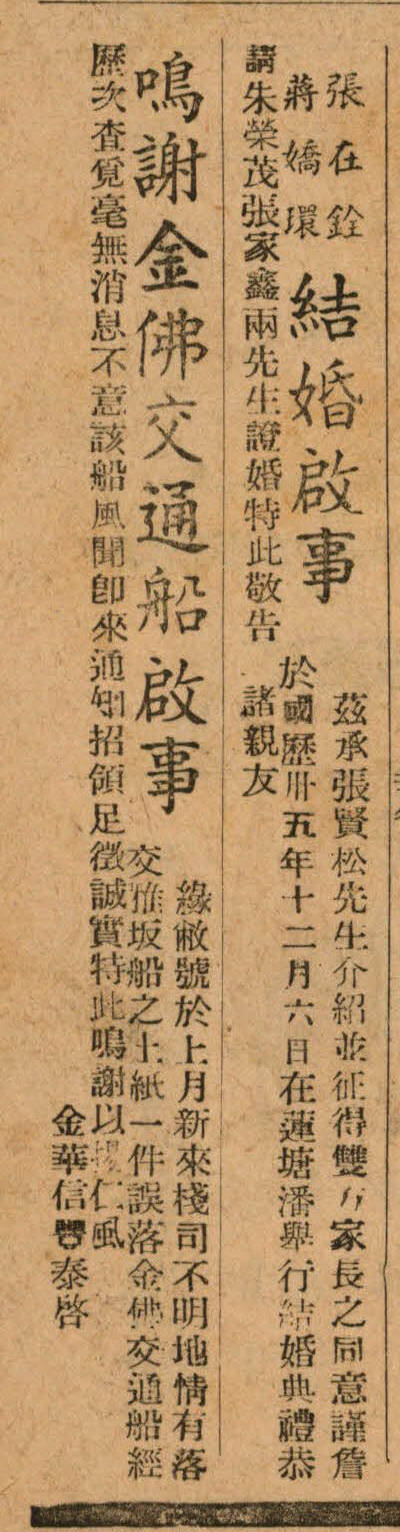 張在銓
蔣嬌環
結婚啟事
茲承張賢松先生介紹並征得雙方家長之同意謹詹
於國歷卅五年十二月六日在蓮塘潘舉行結婚典禮恭
請朱榮茂張家鑫兩先生證婚特此敬告
諸親友
鳴謝金佛交通船啟事
緣敝號於上月新來棧司不明地情有落
交雅坂船之土紙一件誤落金佛交通船經
歷次查覓毫無消息不意該船風聞卽來通知招領足徵誠實特此鳴謝以揚仁風
金華信豐泰啓